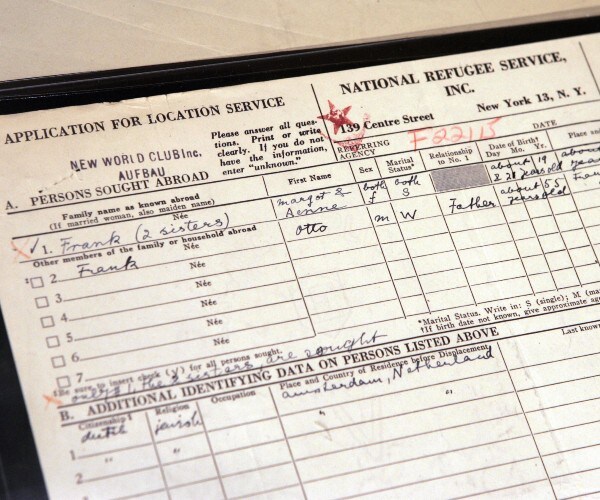 APPLICATION FOR LOCATION SERVICE
NEW WORLD CLUB Inc.
AUFBAU
Please answer all ques-
tions. Print or write
clearly. If you do not
have the information,
enter "unknown."
NATIONAL REFUGEE SERVICE,
INC.
139 Centre Street
New York 13, N. Y.
REFERRING
AGENCY
F22115
DATE
A. PERSONS SOUGHT ABROAD
Family name as known abroad
(If married woman, also maiden name)
First Name
Sex
Marital
Status*
Relationship
to No. 1
Date of Birth†
Day Mo. Yr.
Place and
√ 1. Frank (2 sisters)
Née
margot &
Aenne
both
f
both
S
about 19
& 20 years old
about
Other members of the family or household abroad
2 Frank
Née
Otto
m
W
Father
about 55
years old
3
Née
4
Née
5
Née
6
Née
7
Née
*Marital Status. Write in: S (single); M (ma
†If birth date not known, give approximate ag
‡Be sure to insert check (√) for all persons sought.
only the 2 sisters, are sought
B. ADDITIONAL IDENTIFYING DATA ON PERSONS LISTED ABOVE
Citizenship
Religion
Occupation
Place and Country of Residence before Displacement
Last known
1
dutch
jewish
amsterdam, Netherland
2
"
"
"
"
3